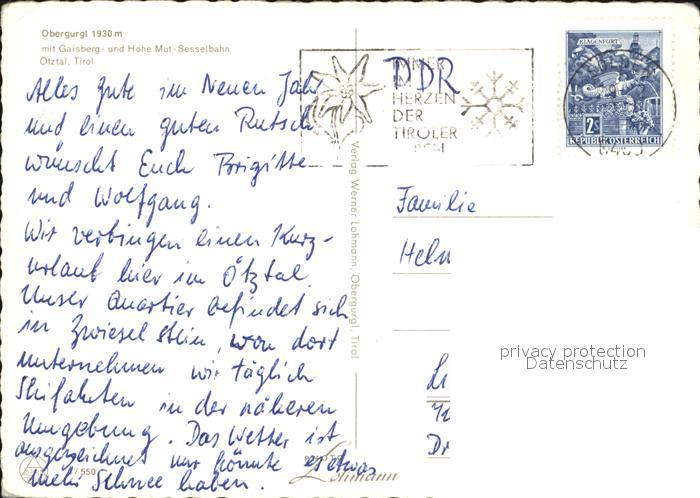 Obergurgl 1930 m
mit Gaisberg- und Hohe Mut-Sesselbahn
Ötztal, Tirol
Alles Gute im Neuen Jahr
und einen guten Rutsch
wünscht Euch Brigitte
und Wolfgang.
Wir verbingen einen Kurz-
urlaub hier im Ötztal.
Unser Quartier befindet sich
in Zwieselstein, von dort
unternehmen wir täglich
Skifahrten in der näheren
Umgebung. Das Wetter ist
ausgezeichnet nur könnte es etwas
mehr Schnee haben.
/550
Verlag Werner Lohmann, Obergurgl, Tirol
Lohmann
DDR
IMMER
IM
HERZEN
DER
TIROLER
KLAGENFURT
2S
REPUBLIK ÖSTERREICH
Familie
Helm
privacy protection
Datenschutz